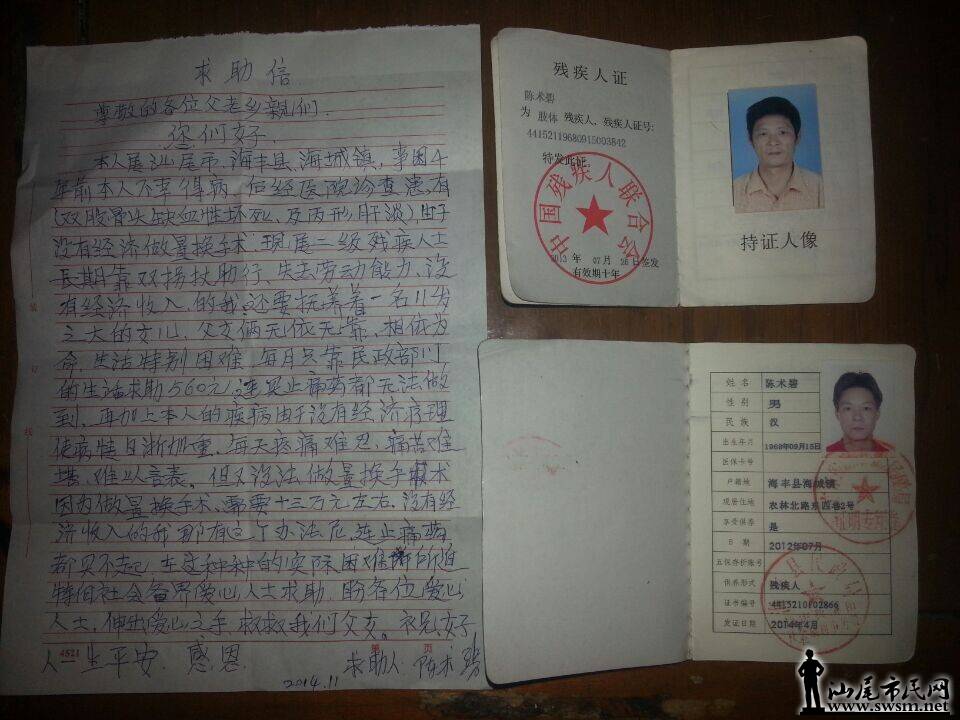 求助信
尊敬的各位父老乡亲们.
您们好
本人属汕尾市.海丰县.海城镇,事因4
年前本人不幸得病,后经医院诊查患有
(双股骨头缺血性坏死、及丙形肝淡),由于
没有经济做置换手术.现属二级残疾人士
长期靠双拐扶助行,失去劳动能力,没
有经济收入的我,还要抚养着一名11岁
之大的女儿,父女俩无依无靠、相依为
命,生活特别困难,每月只靠民政部门
的生活求助560元,连买止痛药都无法做
到,再加上本人的疾病由于没有经济病理
使病情日渐加重,每天疼痛难忍,痛苦难
堪,难以言表,但又没法做置换手术
因为做置换手术,需要十三万元左右,没有经
济收入的我那有这个办法尼,连止痛药
都买不起,在这种种的实际困难所迫
特伯社会各界爱心人士求助,盼各位爱心
人士,伸出爱心之手救救我们父女。祝兄好
人一生平安.感恩.
4521 第 页
求助人:陈术碧
2014.11
装
订
线
残疾人证
陈术碧
为 肢体 残疾人,残疾人证号:
44152119680915003842
特发此证
中国残疾人联合会
2013 年 07 月 26 日签发
有效期十年
持证人像
姓名 陈术碧
性别 男
民族 汉
出生年月 1968年09月15日
医保卡号
户籍地 海丰县海城镇
现居住地 农林北路东四巷2号
享受供养 是
日期 2012年07月
五保存折账号
供养形式 残疾人
证书编号 4415210102866
发证日期 2014年4月
汕尾市民网
www.swsm.net